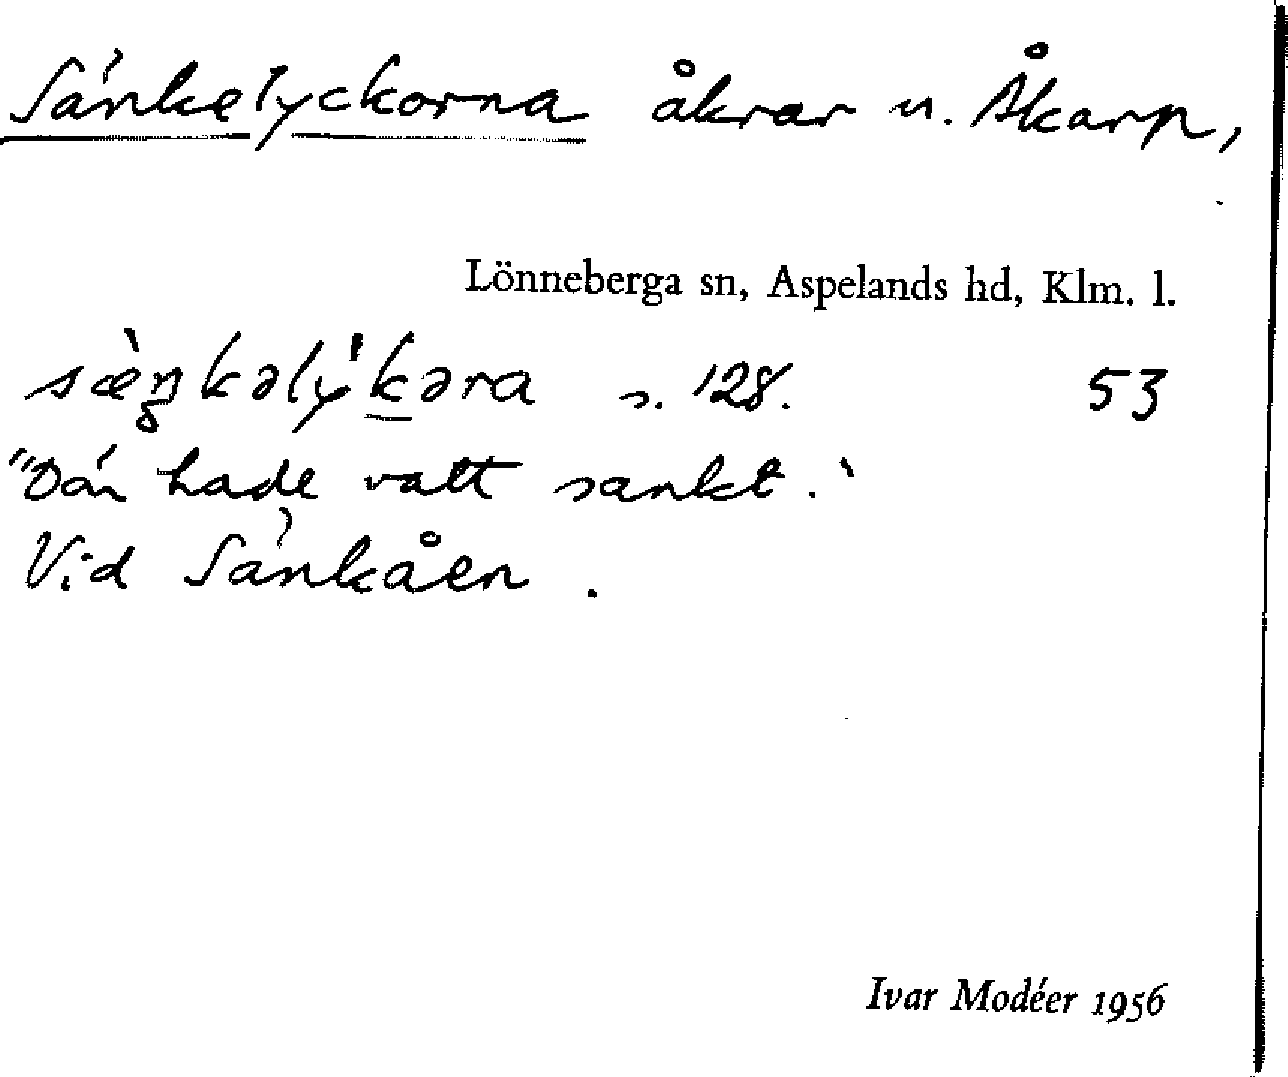 Sänkelyckorna åkrar u. Åkarp,
Lönneberga sn, Aspelands hd, Klm. l.
sæ̀ŋkəlỳkəra s. 128. 53
"Där hade vatt sankt."
Vid Sänkåen.
Ivar Modéer 1956